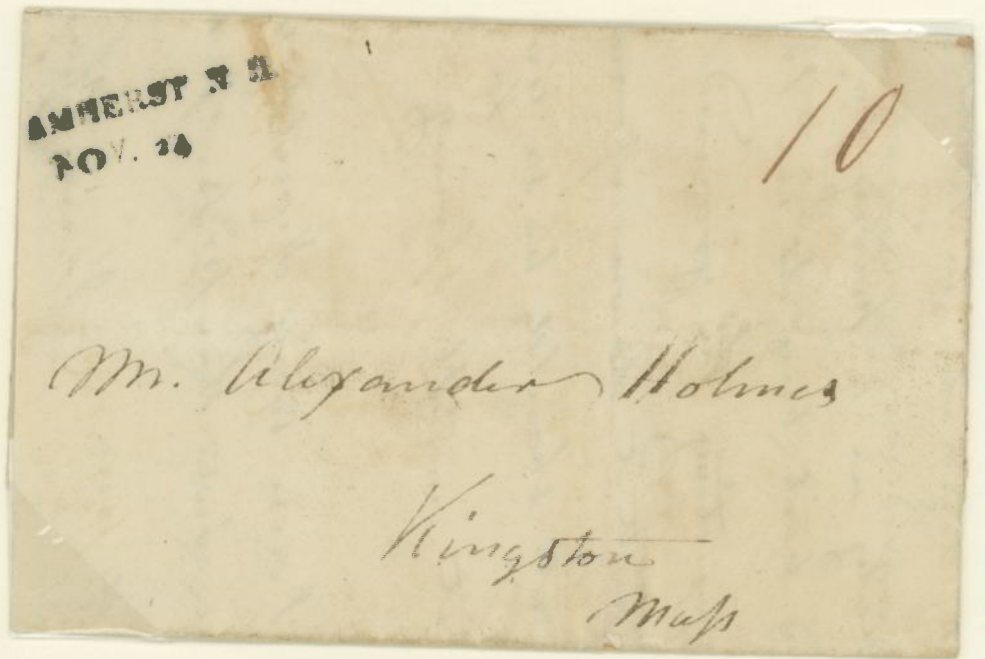 AMHERST N H.
NOV. 14
10
Mr. Alexander Holmes
Kingston
Mass